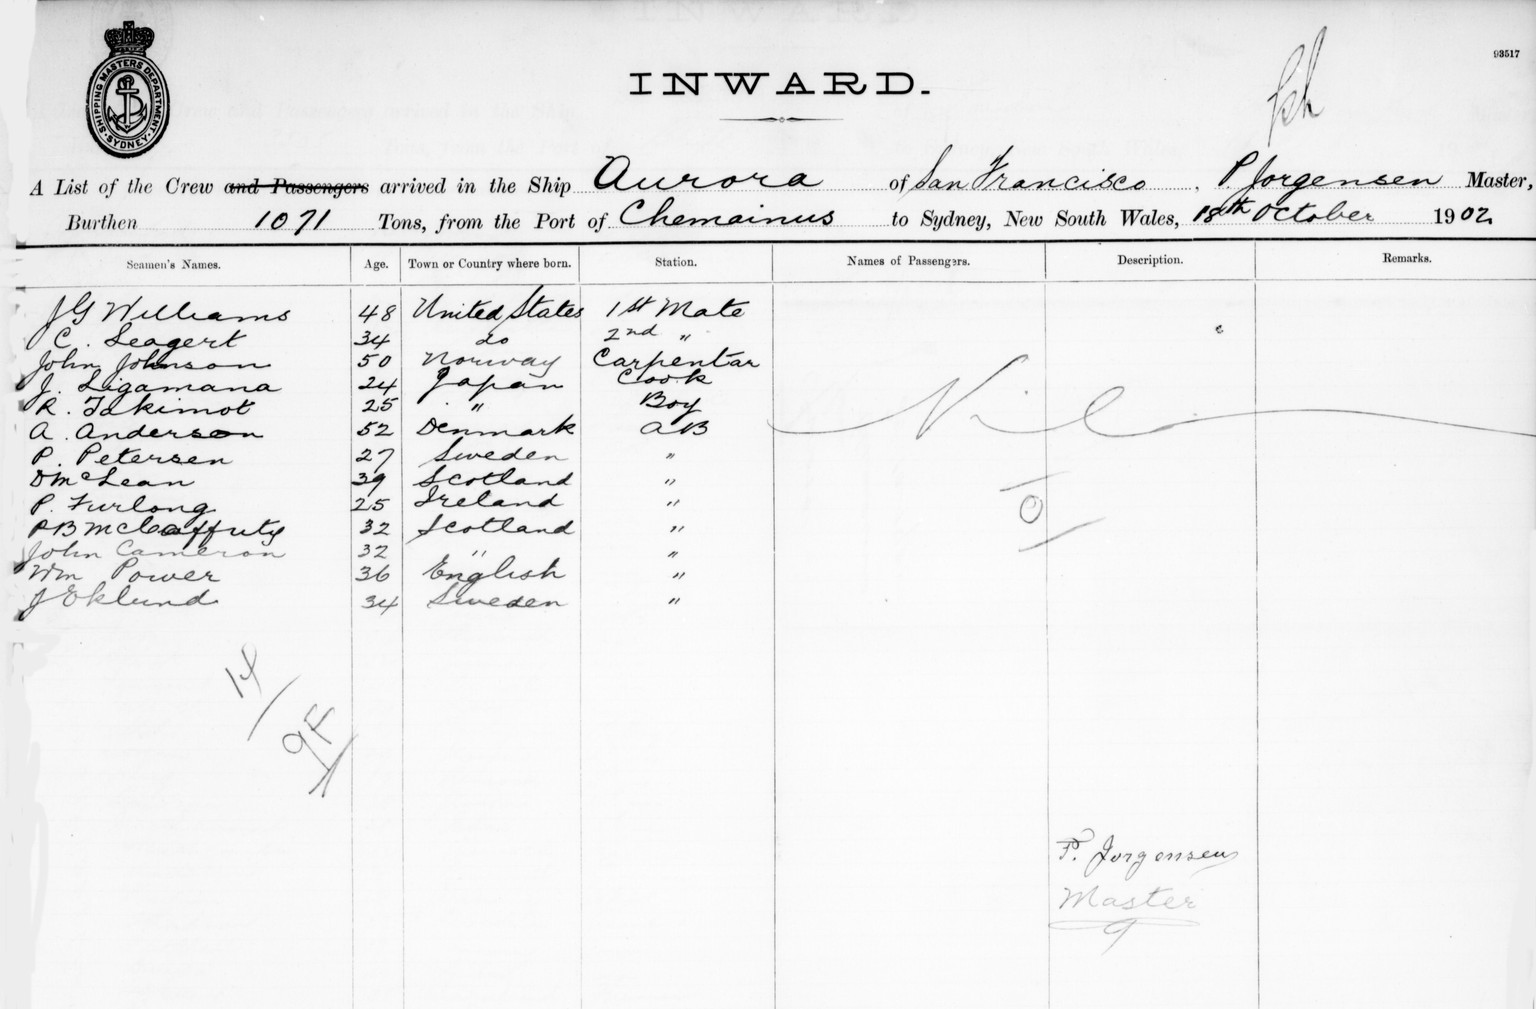 SHIPPING MASTERS DEPARTMENT
SYDNEY
93517
INWARD.
A List of the Crew and Passengers arrived in the Ship Aurora of San Francisco, P. Jorgensen Master,
Burthen 1071 Tons, from the Port of Chemainus to Sydney, New South Wales, 18th October 1902
Seamen's Names. Age. Town or Country where born. Station. Names of Passengers. Description. Remarks.
J G Williams 48 United States 1st Mate
C. Seagert 34 do 2nd "
John Johnson 50 Norway Carpentar
J. Sigamana 24 Japan Cook
R. Takimot 25 " Boy
A. Anderson 52 Denmark AB
Nil
P. Petersen 27 Sweden "
D McLean 39 Scotland "
P. Furlong 25 Ireland "
P B McCaffuty 32 Scotland "
John Cameron 32 " "
Wm Power 36 English "
J Eklund 34 Sweden "
14
9F
P. Jorgensen
Master